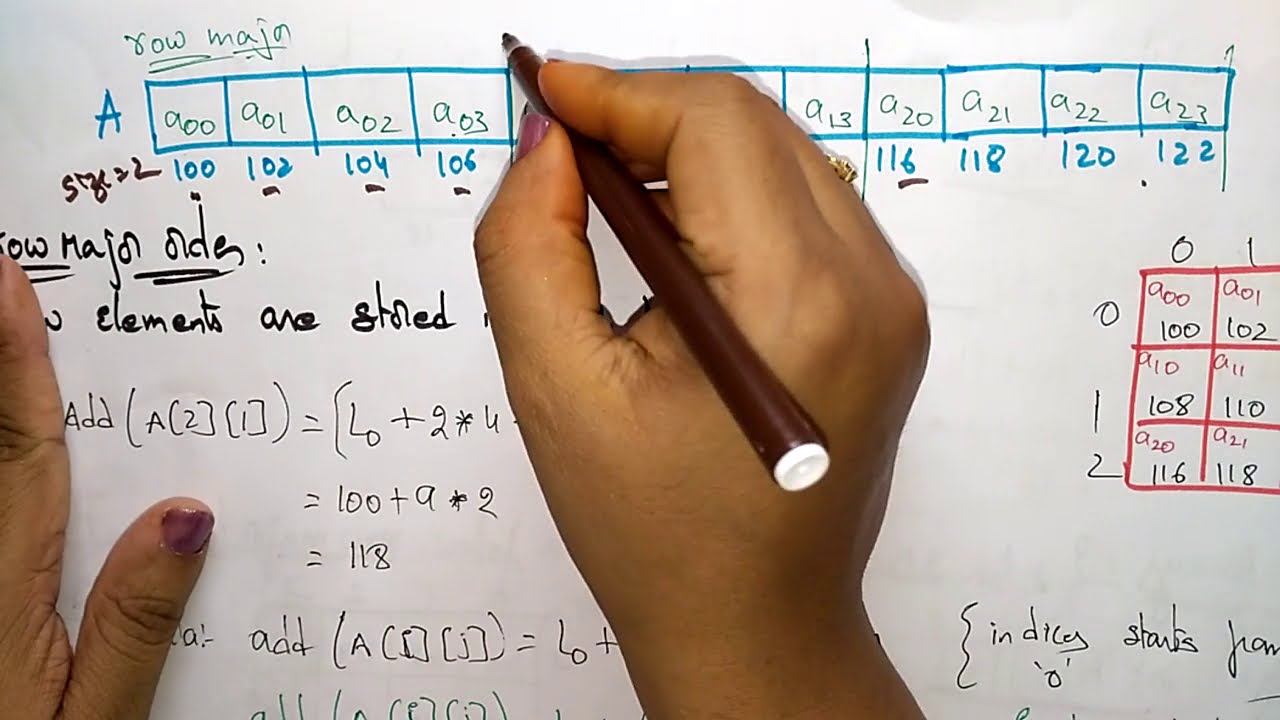 row major
A a00 a01 a02 a03 a13 a20 a21 a22 a23
size=2 100 102 104 106 116 118 120 122
row major order:
elements are stored
Add (A[2][1]) = (L0 + 2*4
= 100+9*2
= 118
add (A[i][j]) = L0 +
{indices starts from
'0'
0 1
0 a00 a01
100 102
a10 a11
1 108 110
a20 a21
2 116 118